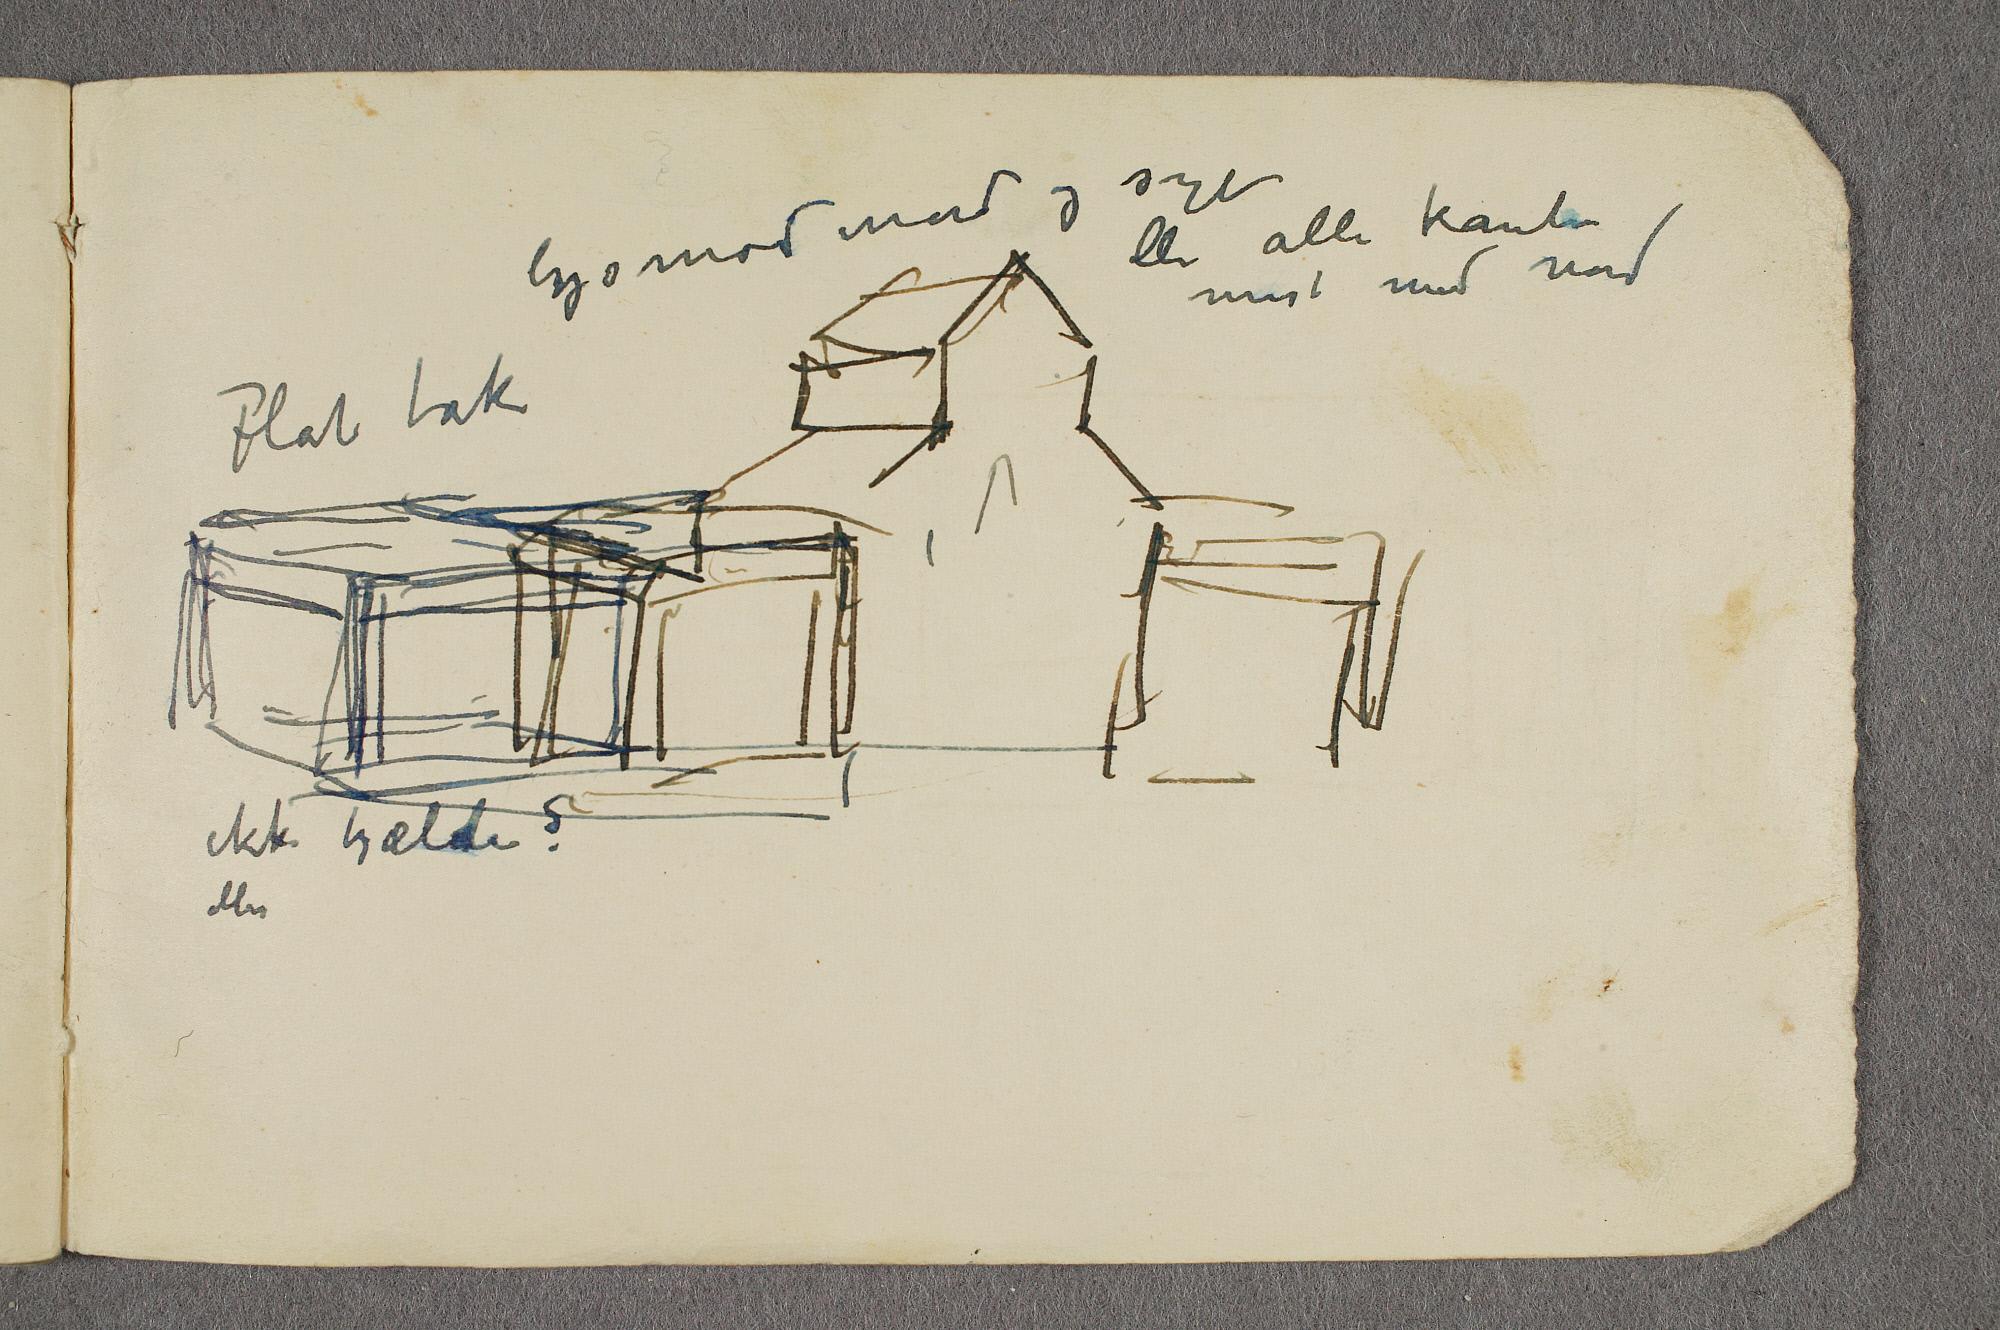 lys mod nord og syd
eller alle kanter
mest mod nord
Flat tak
ikke kjælder?
eller